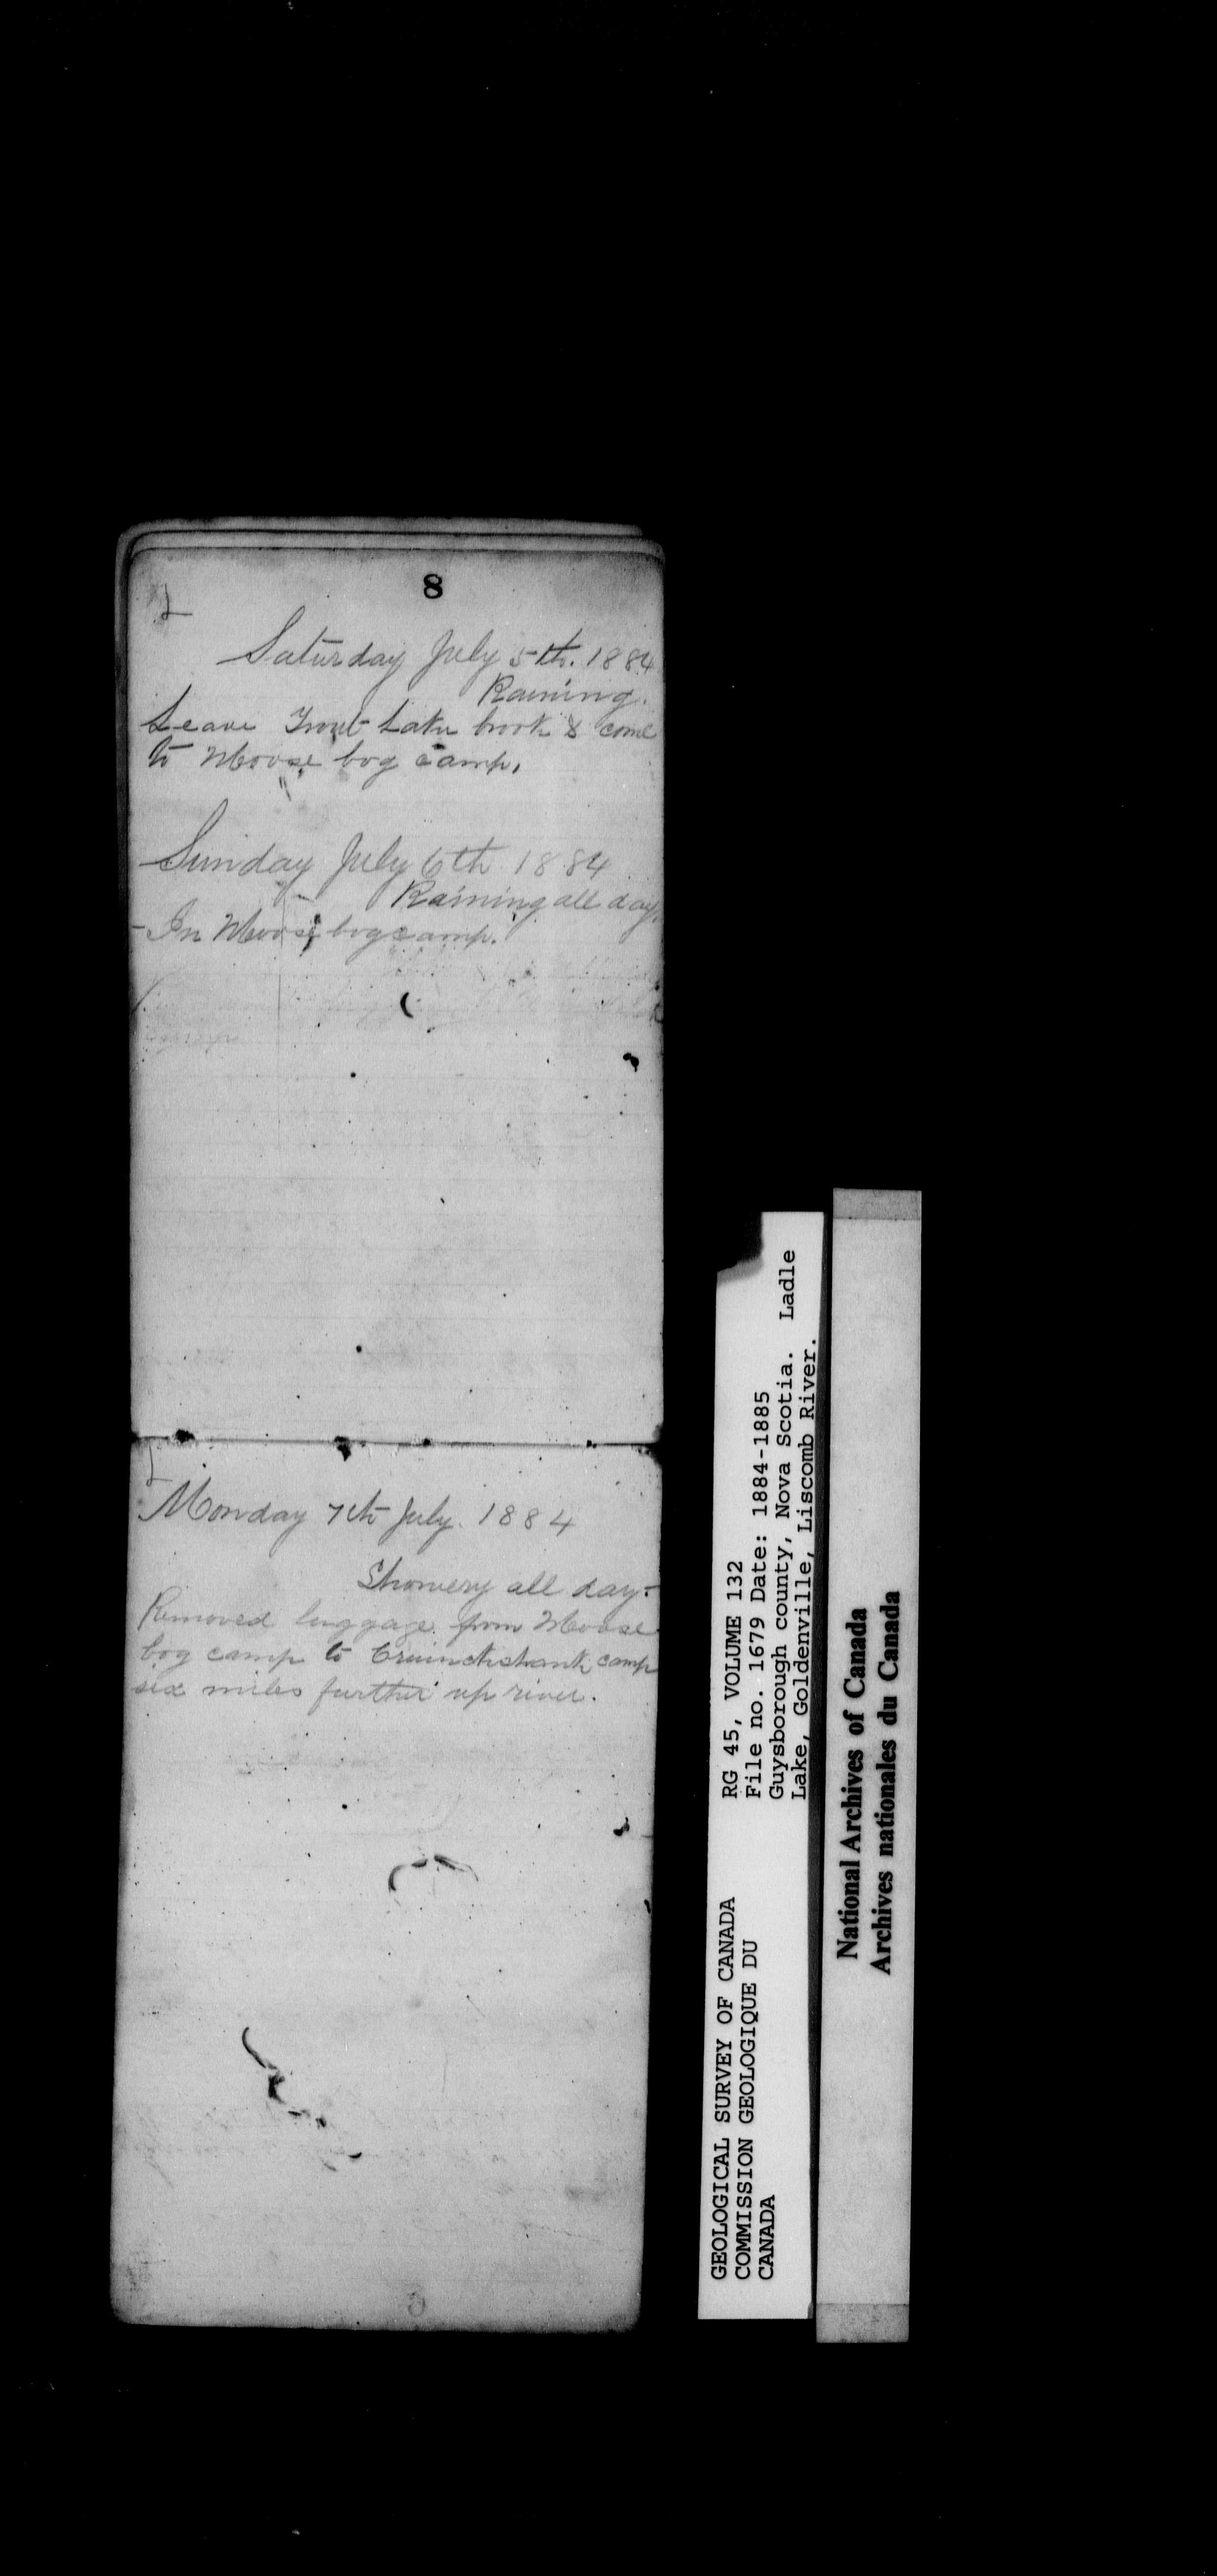 8
Saturday July 5th. 1884
Raining.
Leave Trout Lake brook & come
to Moose bog camp.
Sunday July 6th 1884
Raining all day.
In Moose bog camp.
Monday 7th July. 1884
Showery all day.
Removed luggage from Moose
bog camp to Cruinckshank camp
six miles further up river.
GEOLOGICAL SURVEY OF CANADA
COMMISSION GEOLOGIQUE DU
CANADA
RG 45, VOLUME 132
File no. 1679 Date: 1884-1885
Guysborough county, Nova Scotia. Ladle
Lake, Goldenville, Liscomb River.
National Archives of Canada
Archives nationales du Canada